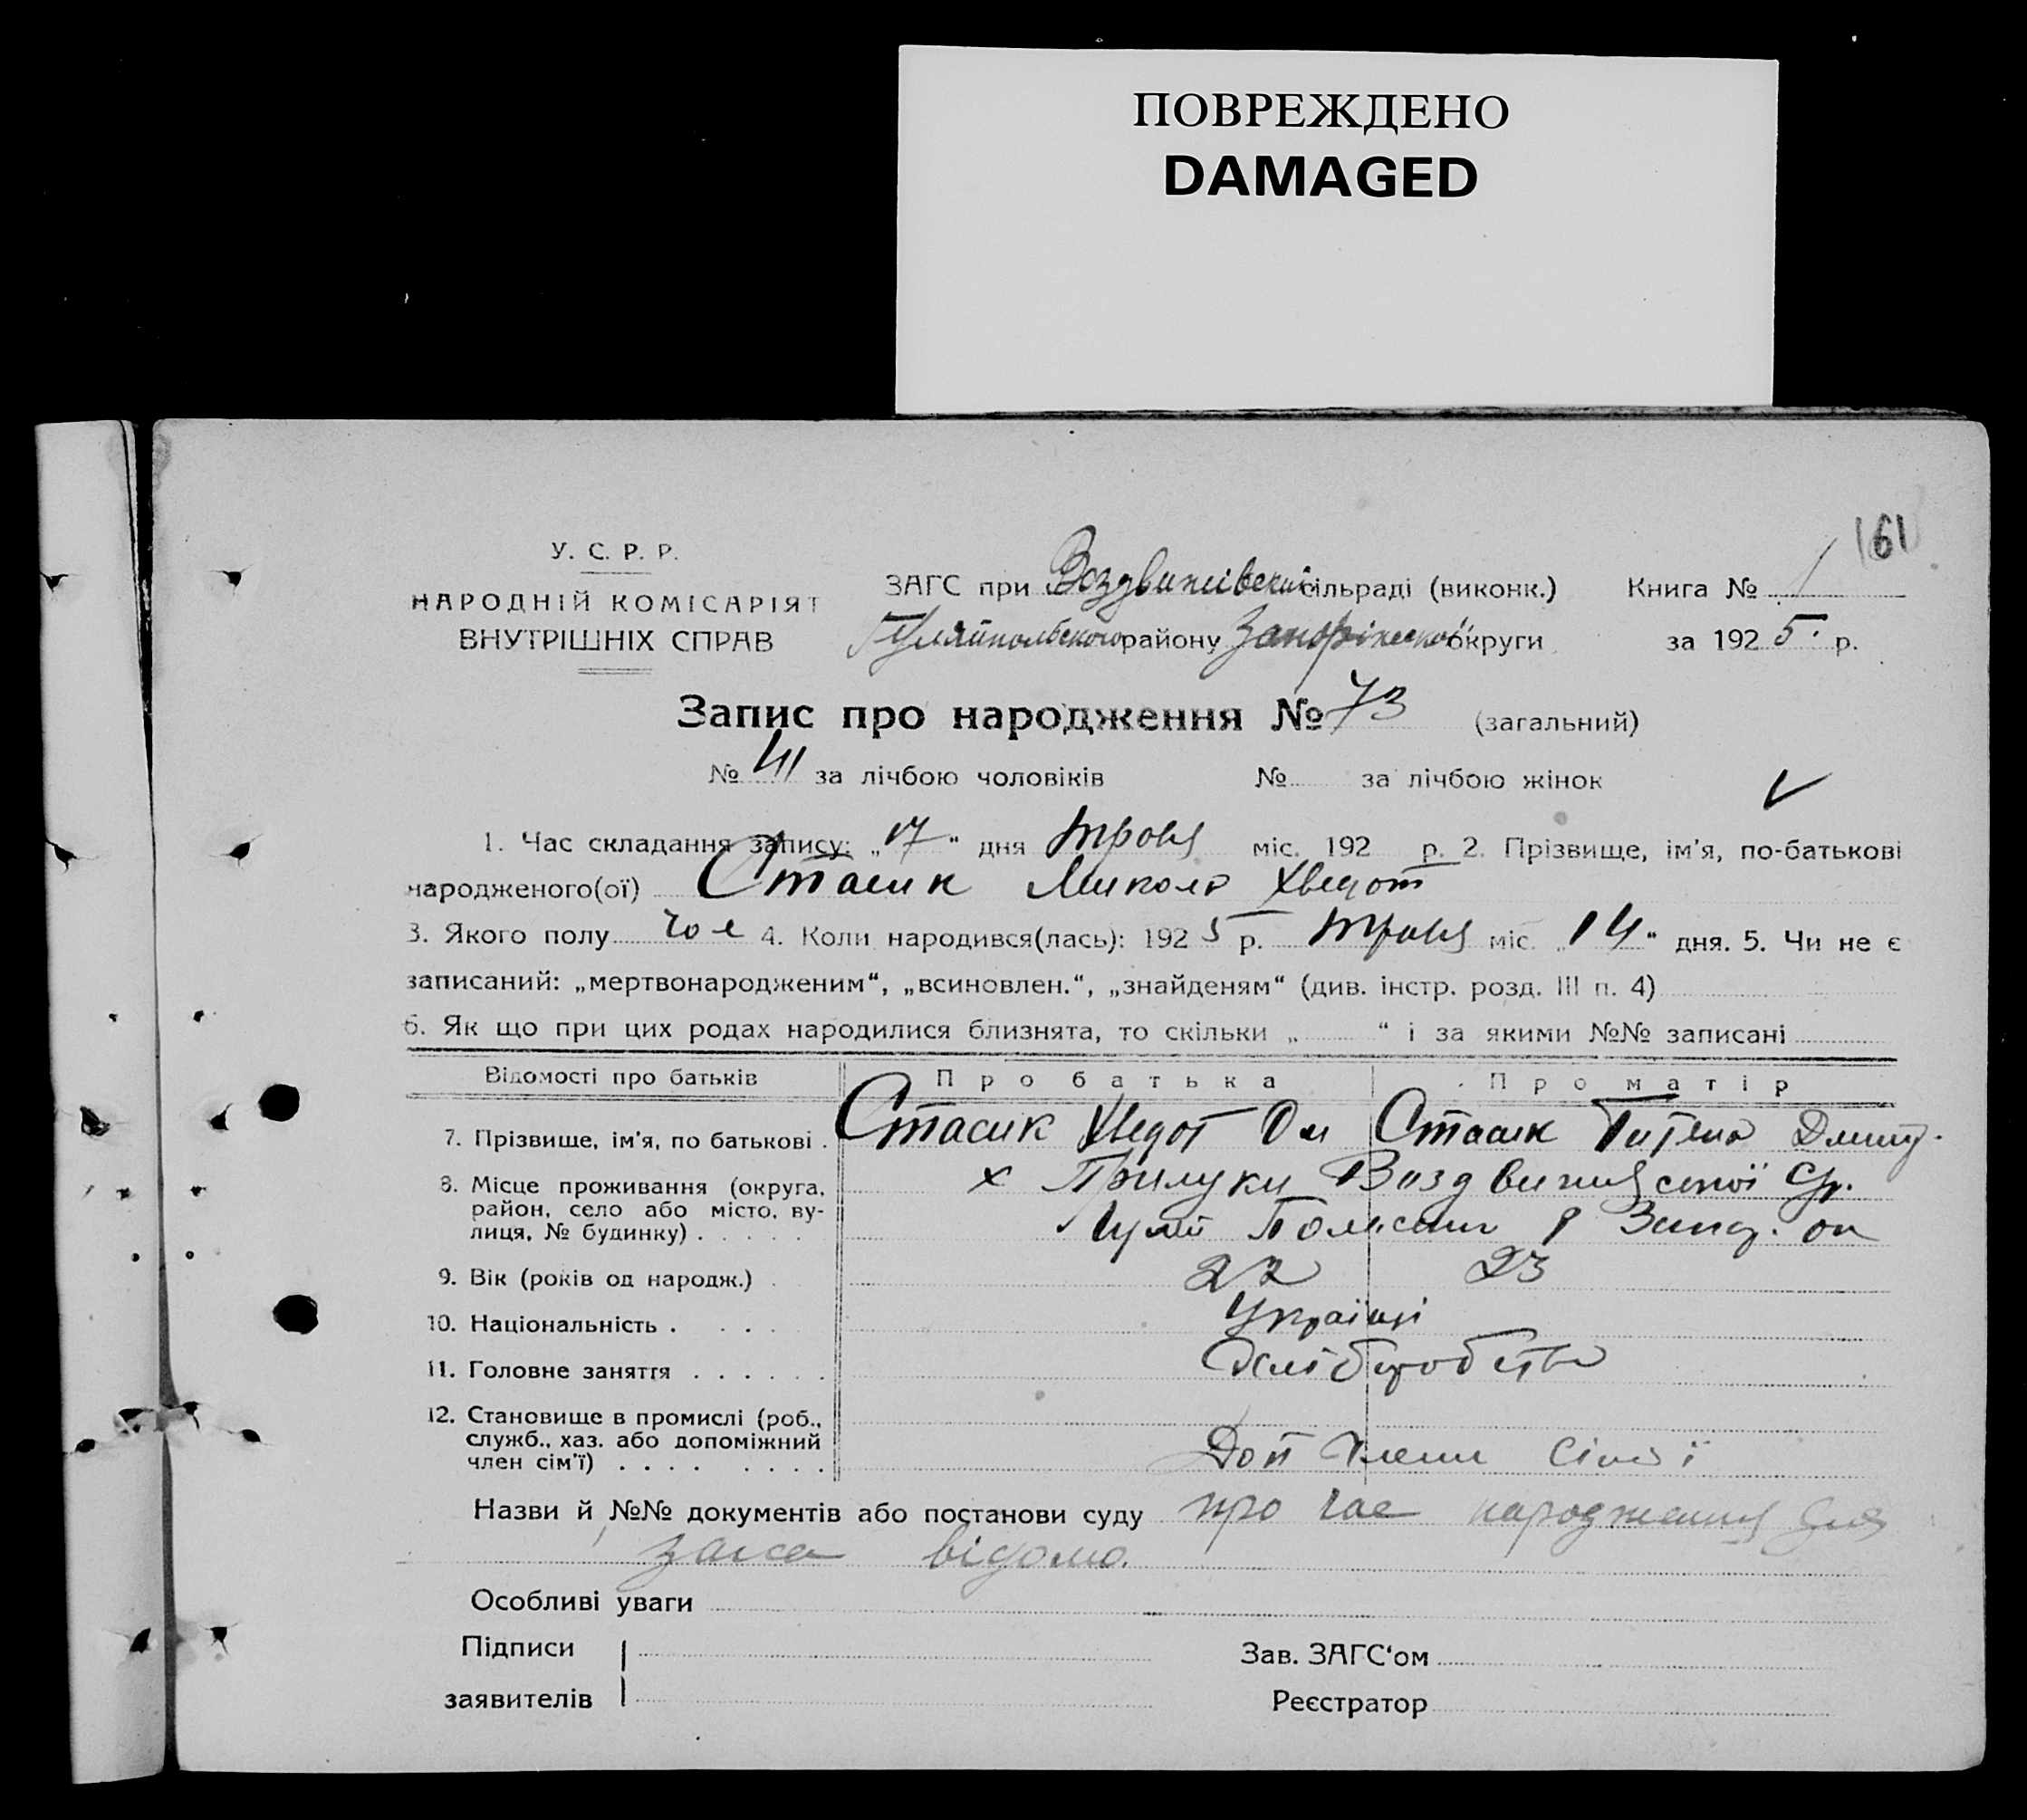 ПОВРЕЖДЕНО
DAMAGED
161
У. С. Р. Р.
НАРОДНІЙ КОМІСАРІЯТ
ВНУТРІШНІХ СПРАВ
ЗАГС при Воздвижівській сільраді (виконк.) Книга № 1
Гуляйпольського району Запоріжської округи за 1925 р.
Запис про народження № 73 (загальний)
№ 41 за лічбою чоловіків № за лічбою жінок
1. Час складання запису: „17“ дня травня міс. 192 р. 2. Прізвище, ім'я, по-батькові
народженого(ої) Стасик Микола Хведот
3. Якого полу чол 4. Коли народився(лась): 1925 р. травня міс. „14“ дня. 5. Чи не є
записаний: „мертвонародженим“, „всиновлен.“, „знайденям“ (див. інстр. розд. III п. 4)
6. Як що при цих родах народилися близнята, то скільки „ “ і за якими №№ записані
Відомості про батьків Про батька Про матір
7. Прізвище, ім'я, по батькові . Стасик Хведот Ом Стасик Титяна Дмит.
8. Місце проживання (округа, район, село або місто, вулиця, № будинку) . . . . . х Прилуки Воздвижевської Ср.
Гуляй Польськ р Запор. ок
9. Вік (років од народж.) . 22 23
10. Національність . . . . Українці
11. Головне заняття . . . . . . Хліборобство
12. Становище в промислі (роб.,
служб., хаз. або допоміжний
член сім'ї) . . . . . . . . Доп Члени Сімї
Назви й №№ документів або постанови суду про час народження для
загса відомо.
Особливі уваги
Підписи
заявителів
Зав. ЗАГС'ом
Реєстратор